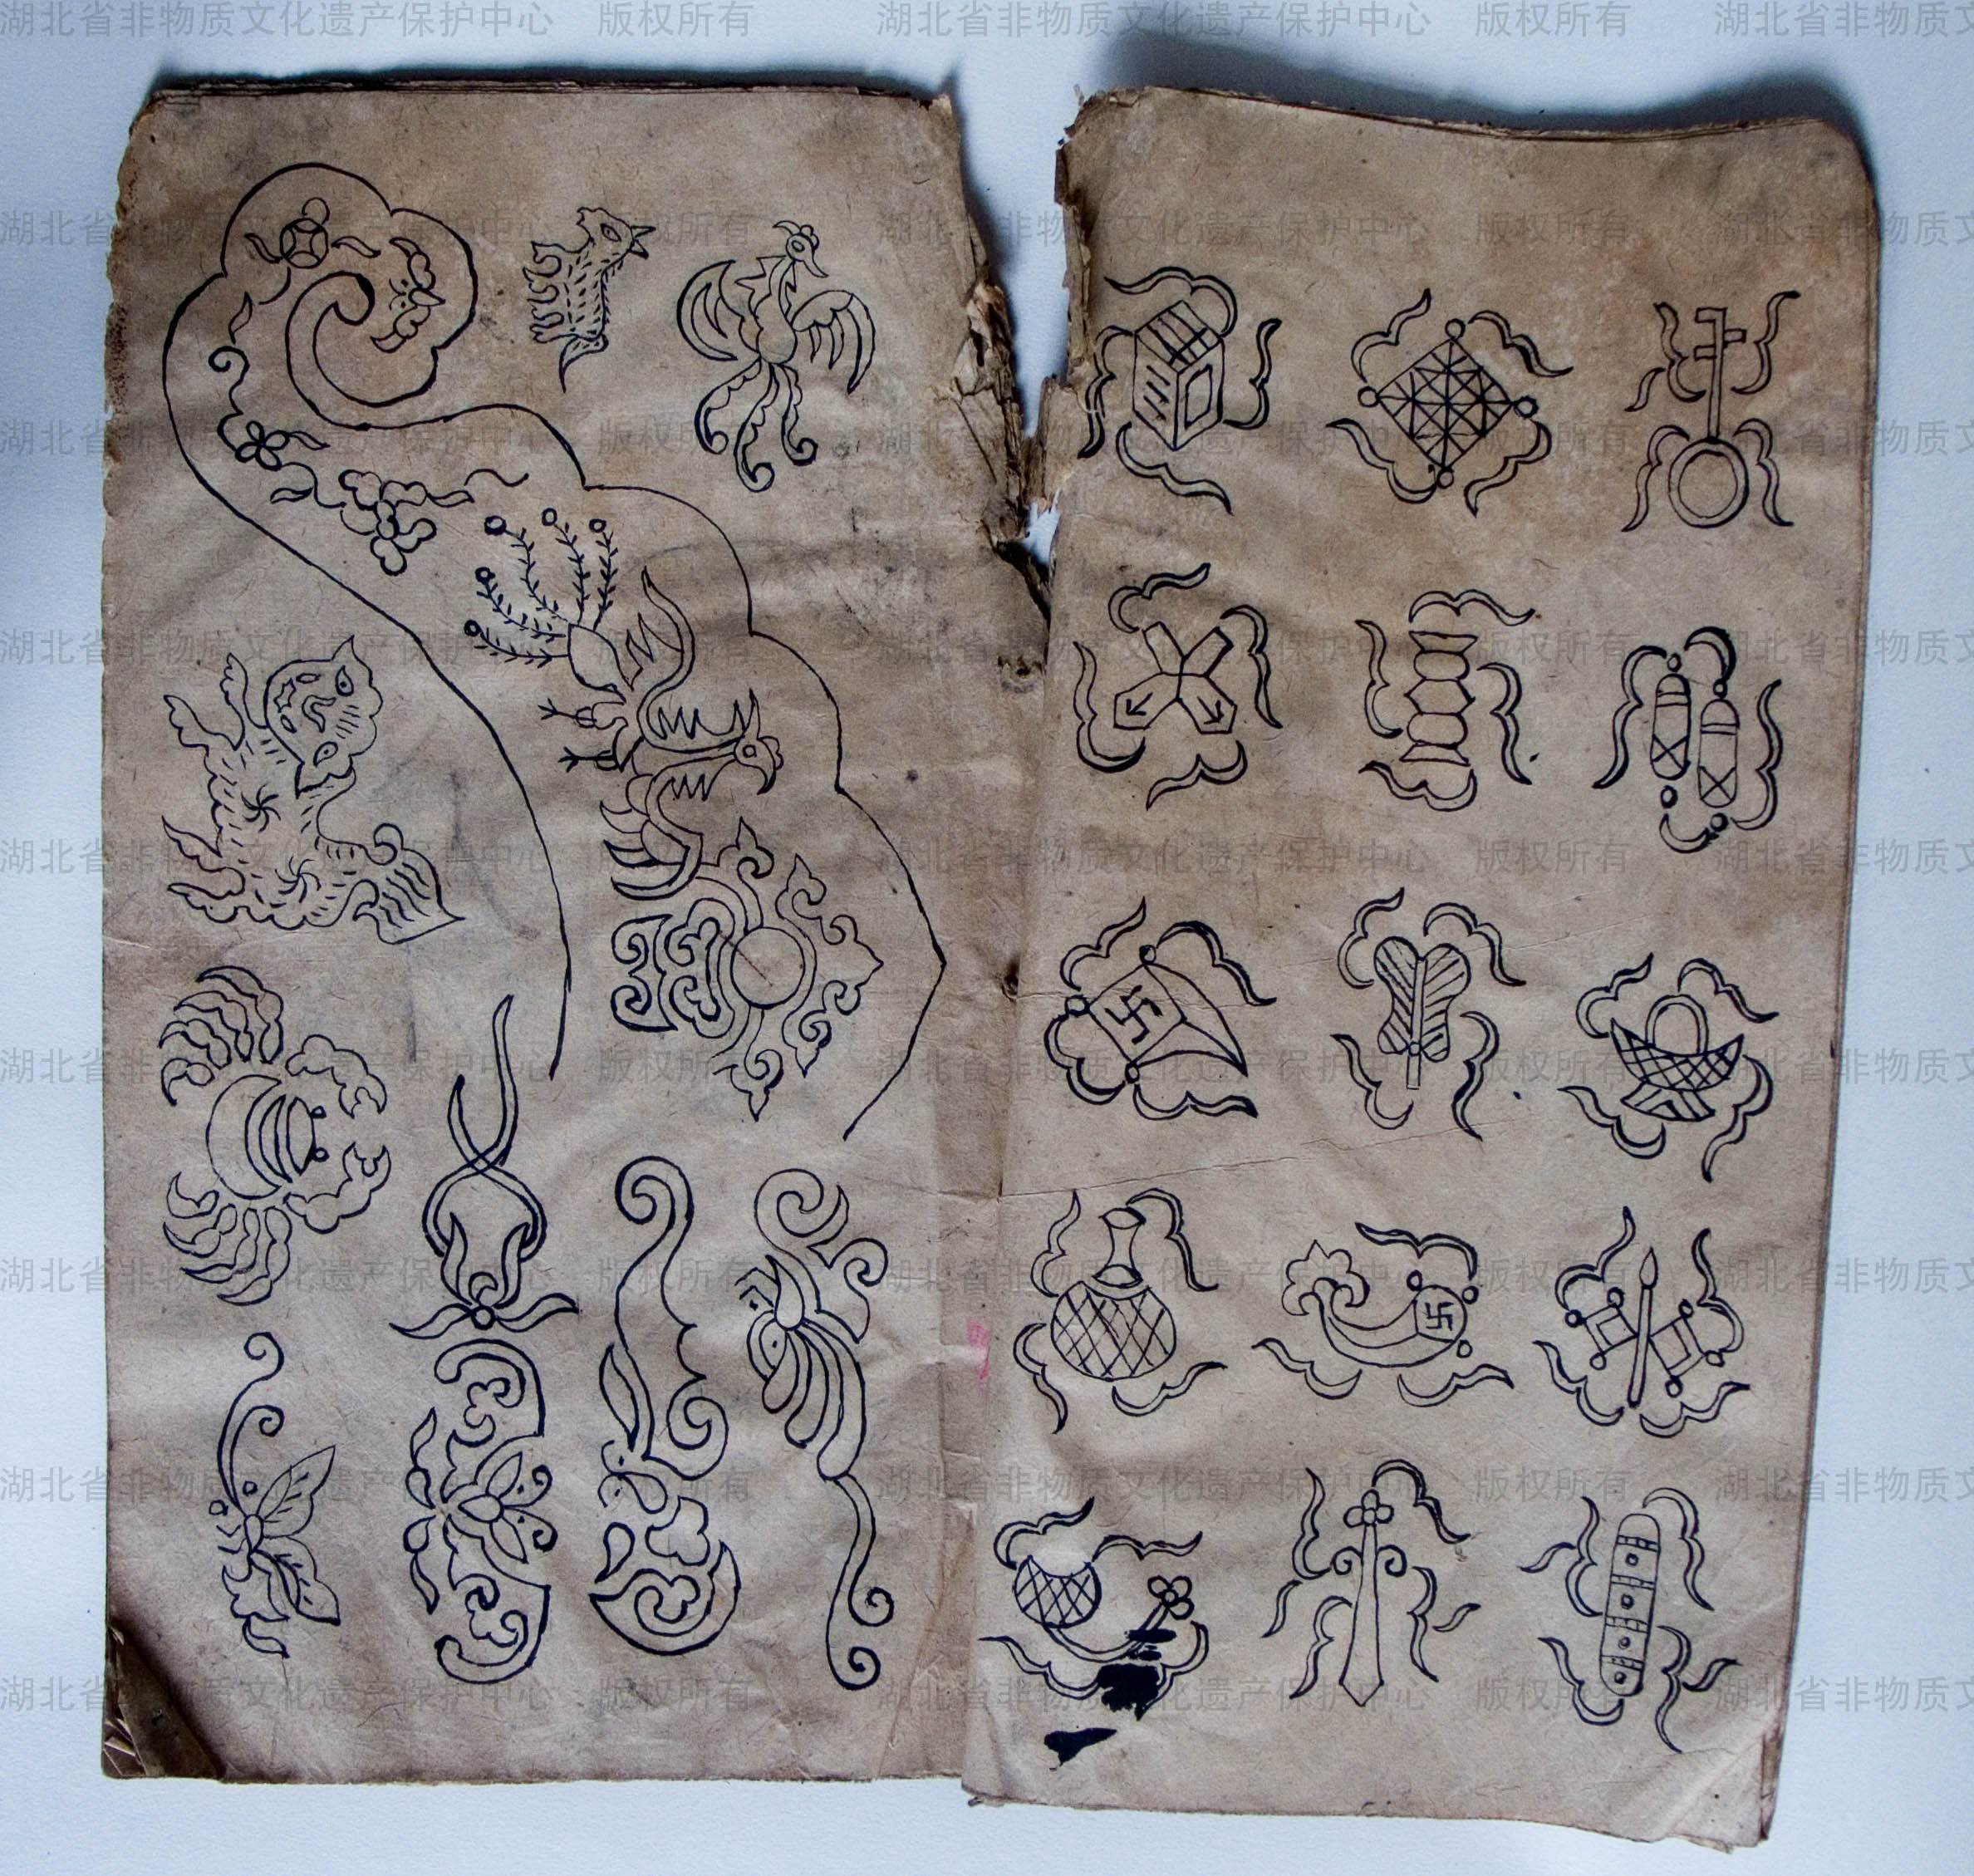 湖北省非物质文化遗产保护中心 版权所有 湖北省非物质文化遗产保护中心 版权所有 湖北省非物质文
湖北省非物质文化遗产保护中心 版权所有 湖北省非物质文化遗产保护中心 版权所有 湖北省非物质文
湖北省非物质文化遗产保护中心 版权所有 湖北省非物质文化遗产保护中心 版权所有 湖北省非物质文
湖北省非物质文化遗产保护中心 版权所有 湖北省非物质文化遗产保护中心 版权所有 湖北省非物质文
湖北省非物质文化遗产保护中心 版权所有 湖北省非物质文化遗产保护中心 版权所有 湖北省非物质文
湖北省非物质文化遗产保护中心 版权所有 湖北省非物质文化遗产保护中心 版权所有 湖北省非物质文
湖北省非物质文化遗产保护中心 版权所有 湖北省非物质文化遗产保护中心 版权所有 湖北省非物质文
湖北省非物质文化遗产保护中心 版权所有 湖北省非物质文化遗产保护中心 版权所有 湖北省非物质文
湖北省非物质文化遗产保护中心 版权所有 湖北省非物质文化遗产保护中心 版权所有 湖北省非物质文